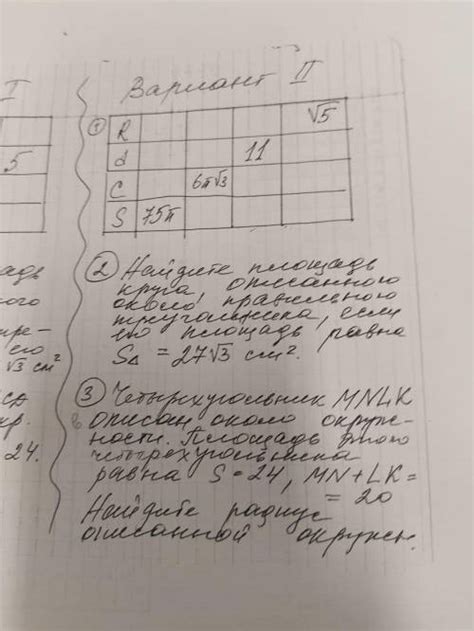 I
5
Вариант II
① R √5
d 11
C 6π√3
S 75π
② Найдите площадь
круга, описанного
около правильного
треугольника, если
его площадь равна
S△ = 27√3 см².
③ Четырехугольник MNLK
описан около окруж-
ности. Площадь этого
четырехугольника
равна S = 24, MN + LK =
= 20
Найдите радиус
описанной окружн.
√3 см²
24.